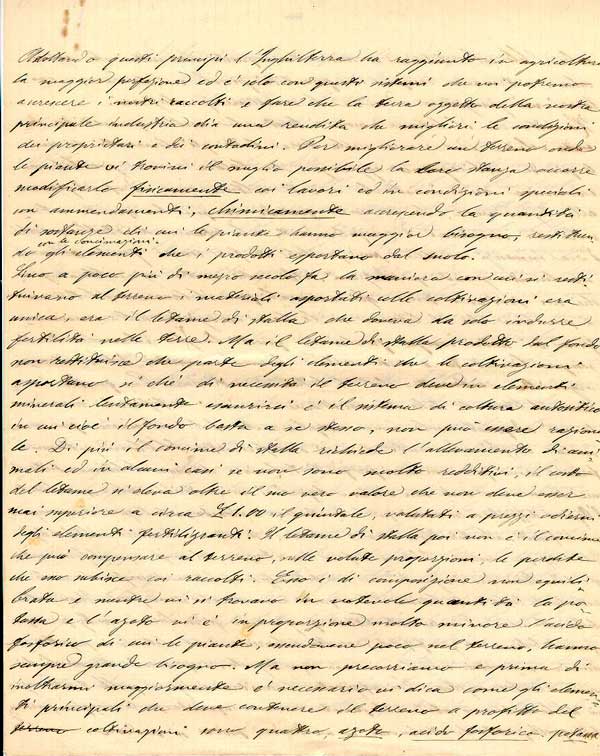 Adottando questi principi l'Inghilterra ha raggiunto in agricoltura
la maggior perfezione ed è solo con questi sistemi che noi potremo
accrescere i nostri raccolti e fare che la terra oggetto della nostra
principale industria dia una rendita che migliori le condizioni
dei proprietari e dei contadini. Per migliorare un terreno onde
le piante vi trovino il meglio possibile la loro stanza occorre
modificarlo fisicamente coi lavori ed in condizioni speciali
con ammendamenti, chimicamente accrescendo la quantità
di sostanze di cui le piante hanno maggior bisogno, restituen-
con le concimazioni.
do gli elementi che i prodotti esportano dal suolo.
Fino a poco più di mezzo secolo fa la maniera con cui si resti
tuivano al terreno i materiali asportati colle coltivazioni era
unica, era il letame di stalla che doveva da solo indurre
fertilità nelle terre. Ma il letame di stalla prodotto dal fondo
non restituisce che parte degli elementi che le coltivazioni
asportano si ché di necessità il terreno deve in elementi
minerali lentamente esaurirsi e il sistema di coltura
in cui cioè il fondo basta a se stesso, non può essere raziona
le. Di più il concime di stalla richiede l'allevamento di ani-
mali ed in alcuni casi se non sono molto redditivi, il costo
del letame si eleva oltre il suo vero valore che non deve esser
mai superiore a circa £ 1.00 il quintale, valutati a prezzi odierni
degli elementi fertilizzanti. Il letame di stalla poi non è il concime
che può compensare al terreno, nelle volute proporzioni, le perdite
che esso subisce coi raccolti. Esso è di composizione non equili-
brata e mentre vi si trovano in notevole quantità la po-
tassa e l'azoto vi è in proporzione molto minore l'acido
fosforico di cui le piante, essendovene poco nel terreno, hanno
sempre grande bisogno. Ma non precorriamo e prima di
inoltrarmi maggiormente è necessario vi dica come gli elemen
ti principali che deve contenere il terreno a profitto del
terreno coltivazioni son quattro, azoto, acido fosforico, potassa